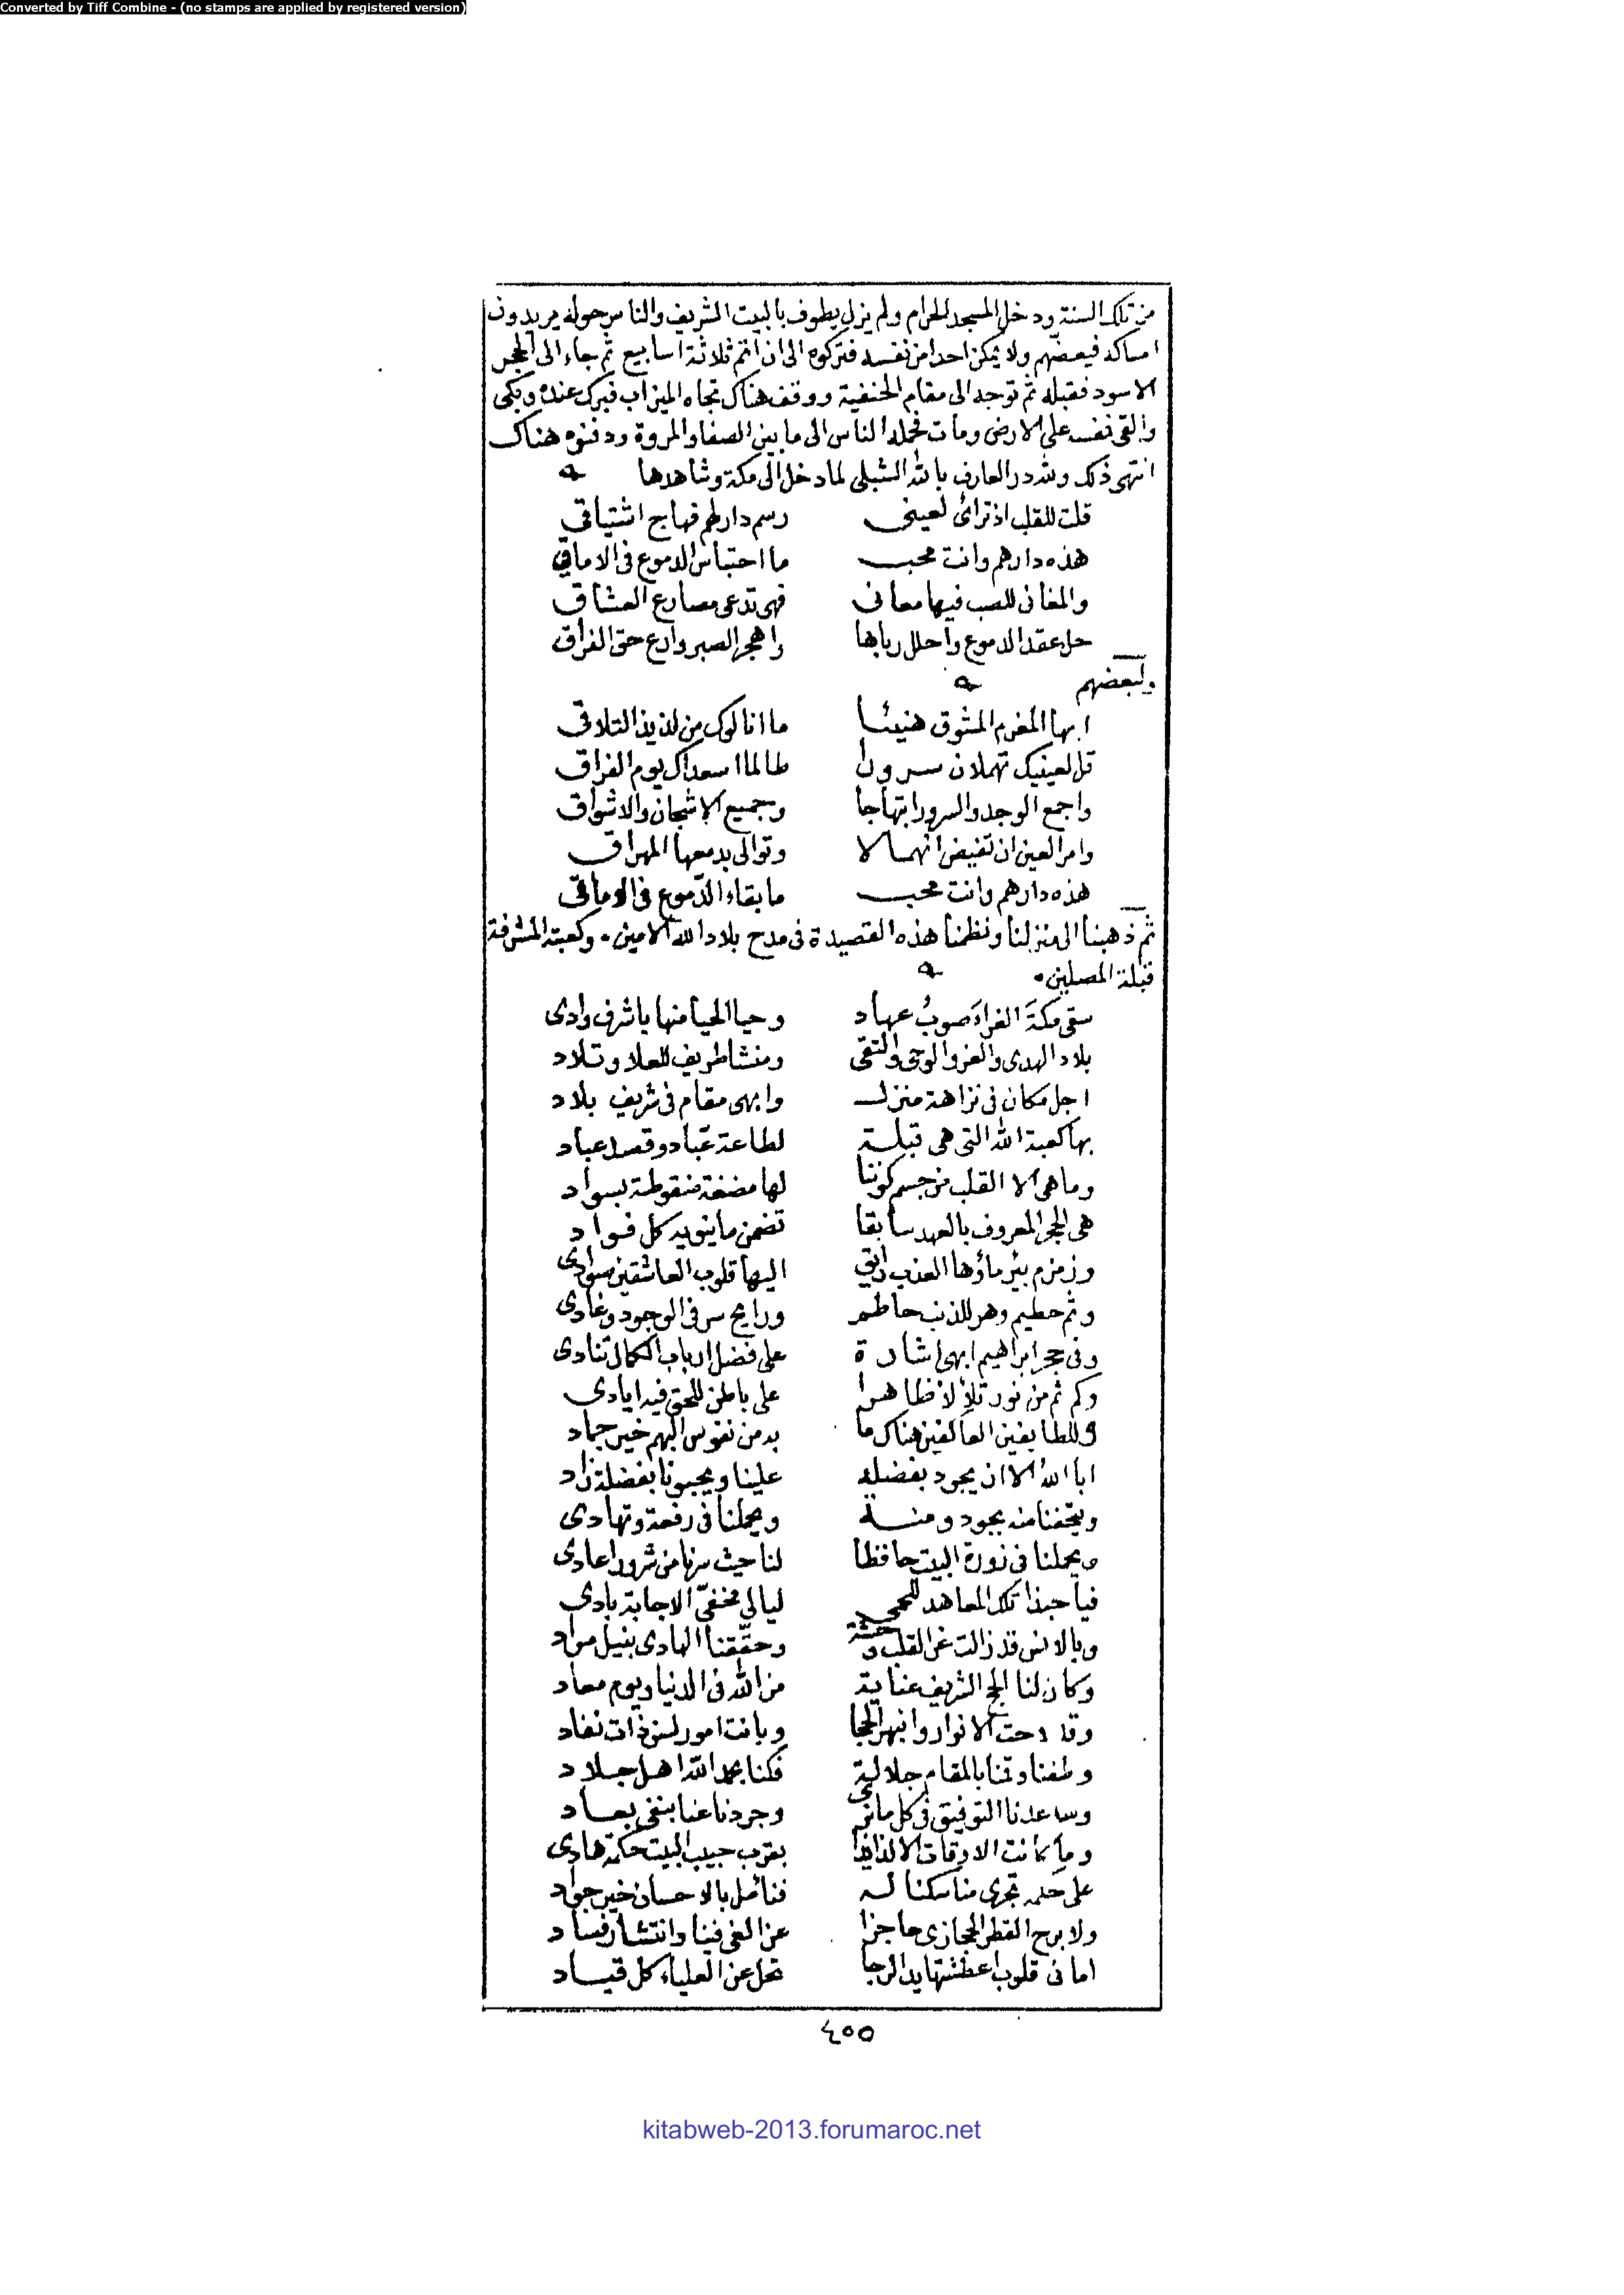 Converted by Tiff Combine - (no stamps are applied by registered version)
من تلك السنة ودخل المسجد الحرام ولم يزل يطوف بالبيت الشريف والناس حوله يريدون
امساكه فيعضهم ولا يمكن احدا من نفسه فتركوه الى ان اتم ثلاثة اسابيع ثم جاء الى الحجر
الاسود فقبله ثم توجه الى مقام الحنفية ووقف هناك تجاه الميزاب فبرك عنده وبكى
والقى نفسه على الارض ومات فحمله الناس الى ما بين الصفا والمروة ودفنوه هناك
انتهى ذلك ولله در العارف بالله الشبلي لما دخل الى مكة وشاهدها
قلت للقلب اذ تراءى لعيني رسم دار لهم فهاج اشتياقي
هذه دارهم وانت محب ما احتباس الدموع في الاماقي
والمغاني للصب فيها معاني فهي تدعى مصارع العشاق
حل عقد الدموع واحلل رباها واهجر الصبر وارع حق الفراق
ولبعضهم
ايها المغرم المشوق هنيئا ما انالوك من لذيذ التلاقي
قل لعينيك تهملان سرورا طالما اسعداك يوم الفراق
واجمع الوجد والسرور ابتهاجا وجميع الاشجان والاشواق
وامر العين ان تفيض انهمالا وتوالى بدمعها المهراق
هذه دارهم وانت محب ما بقاء الدموع في الاماقي
ثم ذهبنا الى منزلنا ونظمنا هذه القصيدة في مدح بلاد الله الامين. وكعبته المشرفة
قبلة المصلين.
سقى مكة الغراء صوب عهاد وحيا الحيا منها باشرف وادى
بلاد الهدى والعز والوحى والتقى ومنشا طريف للعلا وتلاد
اجل مكان في نزاهة منزل وابهى مقام في شريف بلاد
بها كعبة الله التي هي قبلة لطاعة عباد وقصد عباد
وما هي الا القلب من جسم كوننا لها مضغة منقوطة بسواد
هي الحجر المعروف بالعهد سابقا تضمن ما ينويه كل فواد
وزمزم بئر ماؤها العذب اليها قلوب العاشقين صوادى
وثم حطيم وهو للذنب حاطم ورايح سر في الوجود وغادى
وفي حجر ابراهيم ابهى اشارة على فضل ارباب الكمال تنادى
وكم ثم من نور تلألأ ظاهرا على باطن للحق فيه ايادى
وللطايفين العاكفين هناك ما به من نفوس
ابا الله الا ان يجود بفضله علينا ويحبونا بفضلة زاد
ويتحفنا منه بجود ومنة ويحملنا في رفعة وتهادى
ويجعلنا في زورة البيت حافظا لنا حيث سرنا من شرور اعادى
فيا حبذا تلك المعاهد للحمى ليالي مخفي الاجابة بادى
وبالانس قد زالت عن القلب وحشة وحققنا الهادى بنيل مراد
وكان لنا الحج الشريف عناية من الله في الدنيا ويوم معاد
وقد الانوار وانبهر الحجا وبانت امور لسن ذات نفاد
وطفنا وقمنا بالمقام جلالة فكنا بحمد الله اهل جلاد
وساعدنا التوفيق في كل ما نرى وجردنا عنا بنفي بعاد
وما كانت الاوقات الا لذايذا بقرب حبيب البيت هادى
على حكمه تجرى مناسكنا له فنأمل بالاحسان خير جواد
ولا برح القطر الحجازى حاجزا عن الغى فينا وانتشار فساد
اماني قلوب اعطشتها يد الرجا تحل عن العلياء كل قياد
٤٥٥
kitabweb-2013.forumaroc.net